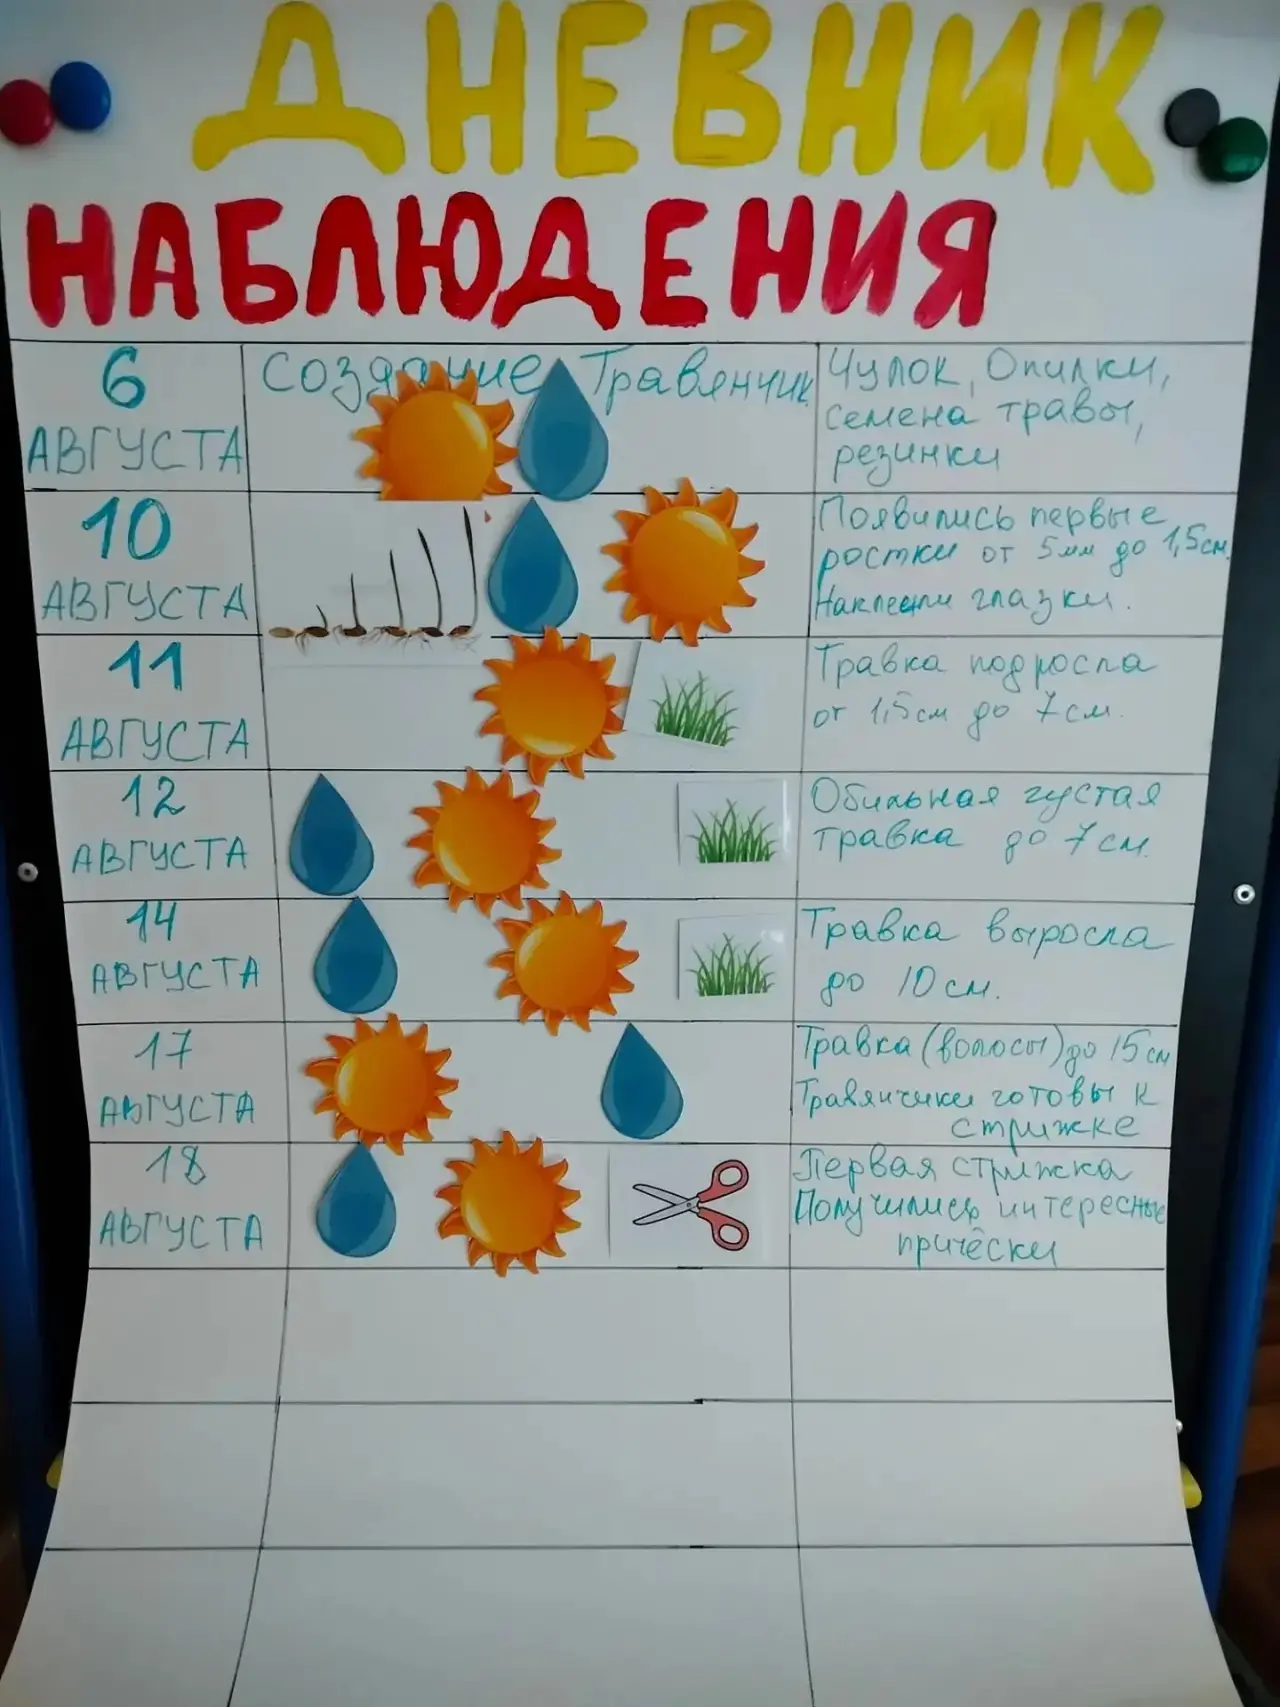 ДНЕВНИК
НАБЛЮДЕНИЯ
6
АВГУСТА
Создание Травянчик
Чулок, Опилки,
семена травы,
резинки
10
АВГУСТА
Появились первые
ростки от 5мм до 1,5см.
Наклеили глазки.
11
АВГУСТА
Травка подросла
от 1,5см до 7см.
12
АВГУСТА
Обильная густая
травка до 7см.
14
АВГУСТА
Травка выросла
до 10см.
17
АВГУСТА
Травка (волосы) до 15см
Травянчики готовы к
стрижке
18
АВГУСТА
Первая стрижка
Получились интересные
причёски